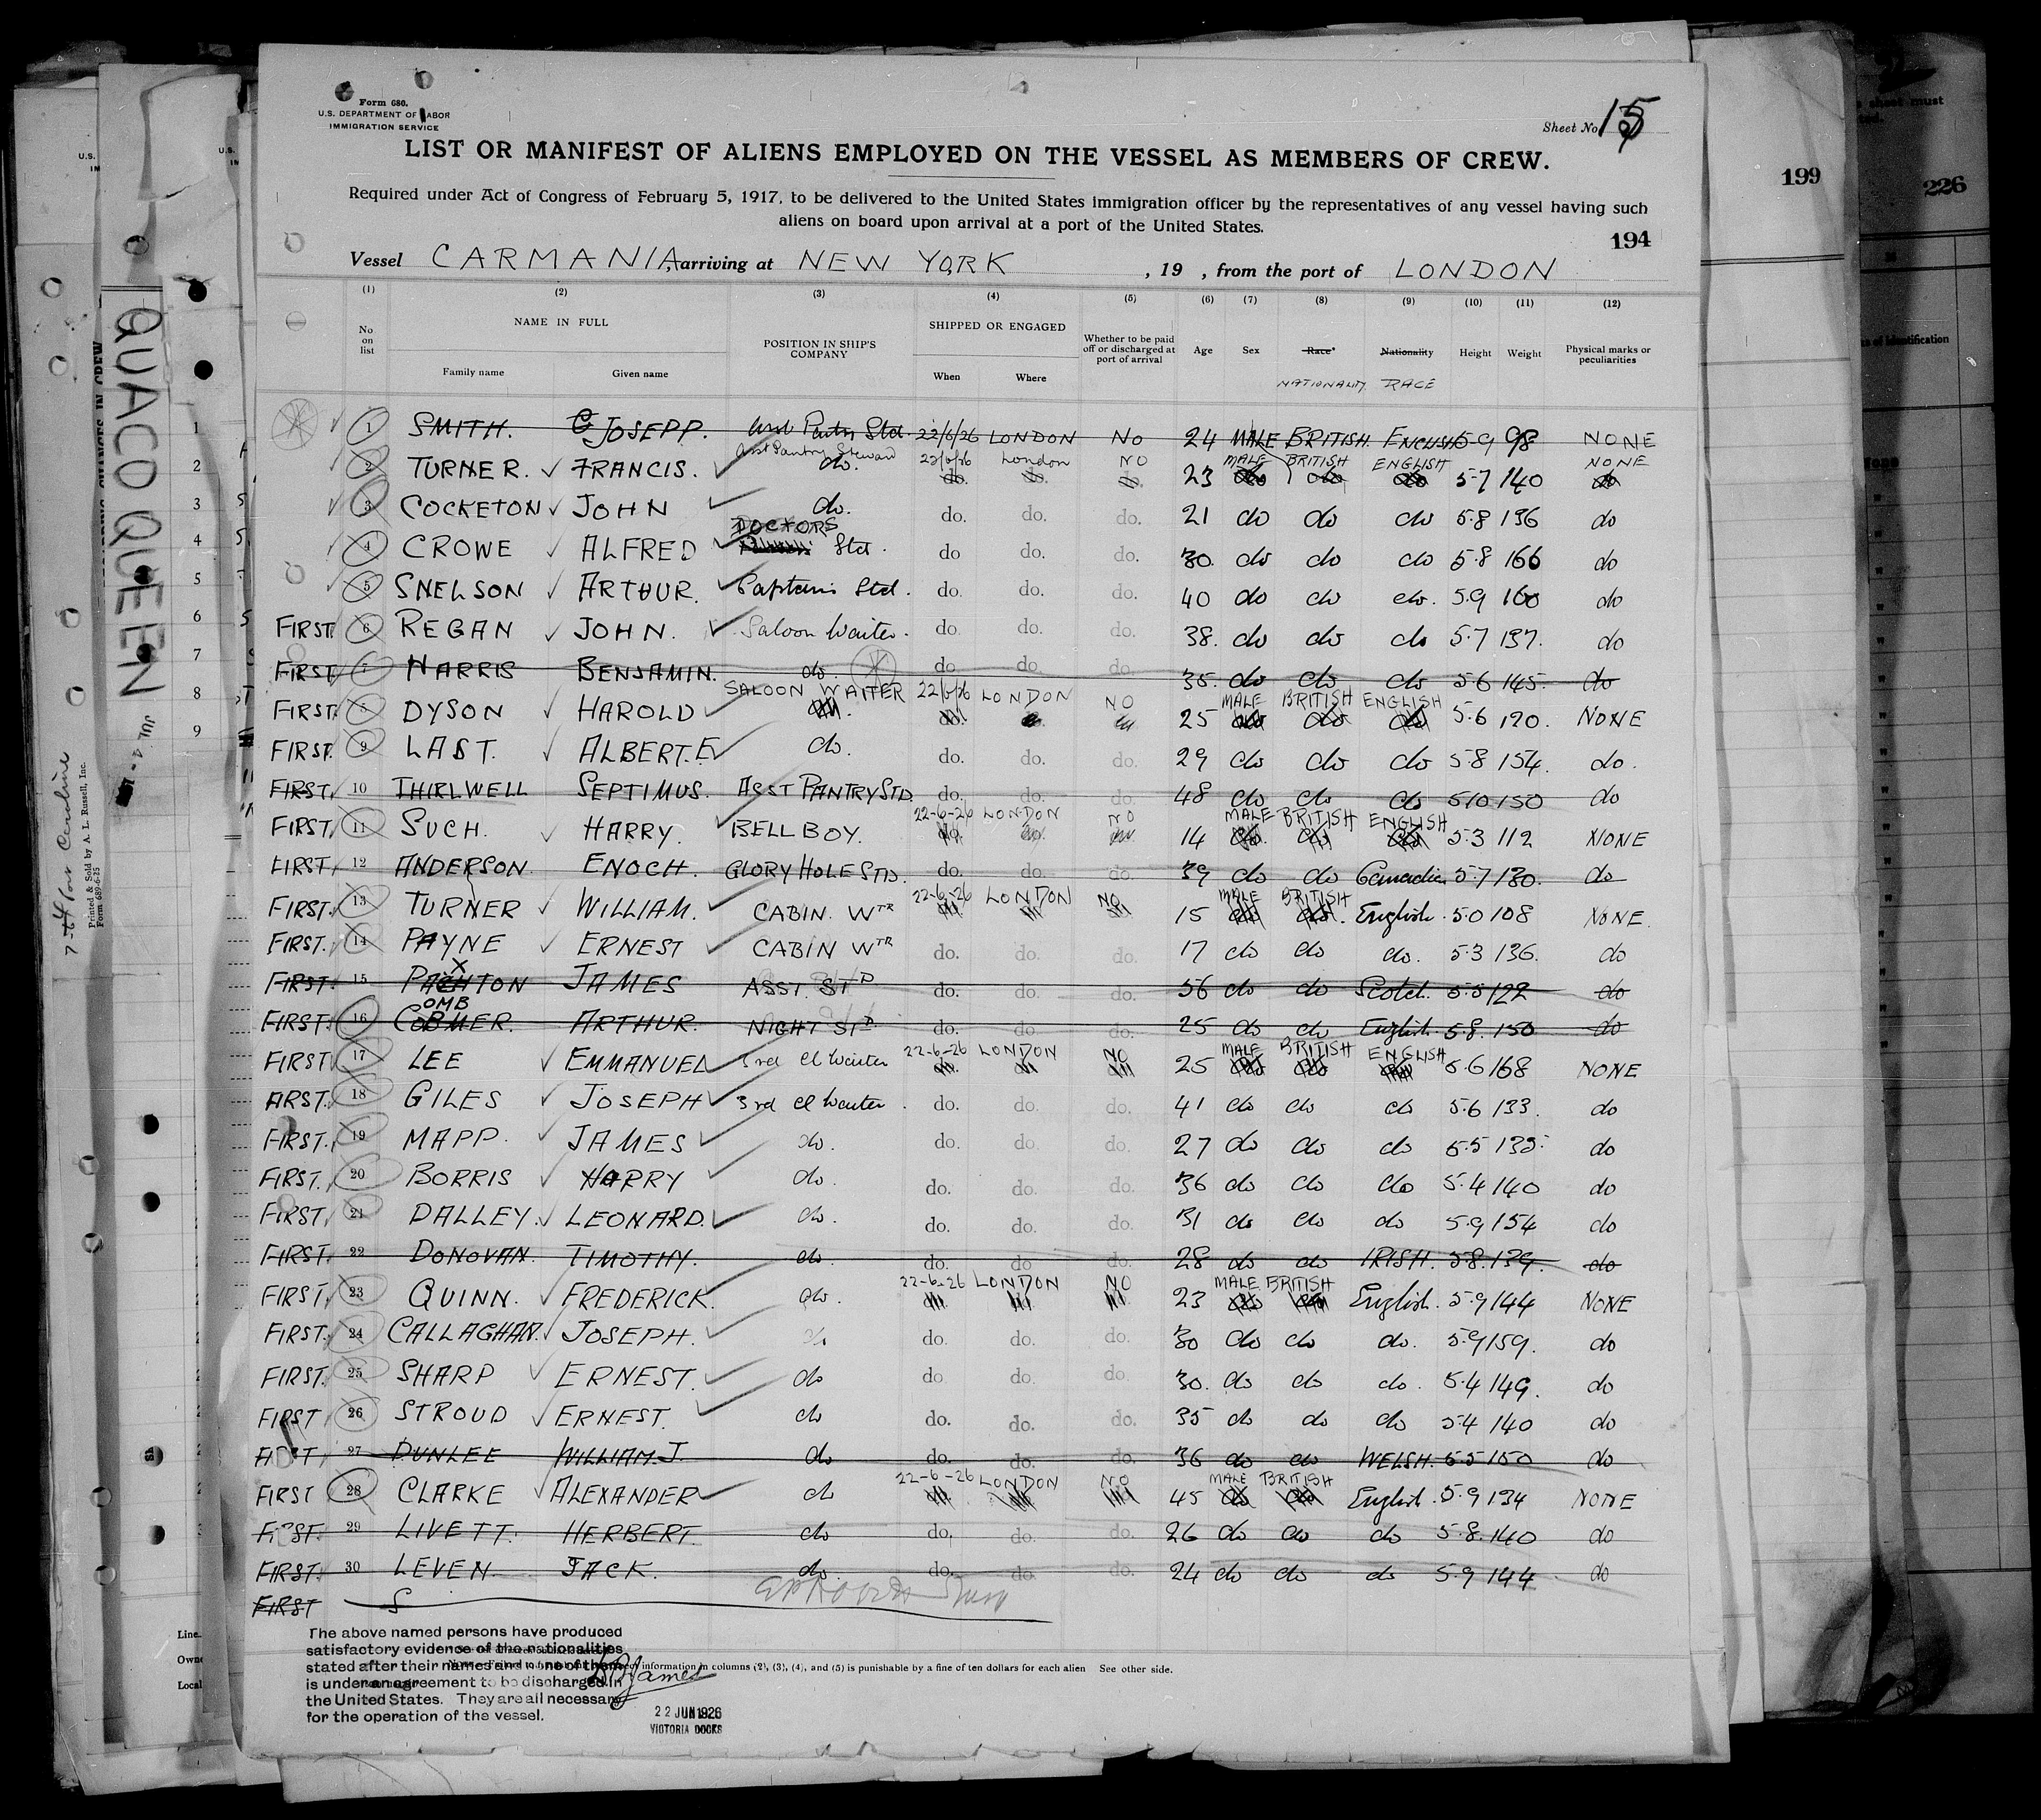 Form 680.
U.S. DEPARTMENT OF LABOR
IMMIGRATION SERVICE
Sheet No. 15
LIST OR MANIFEST OF ALIENS EMPLOYED ON THE VESSEL AS MEMBERS OF CREW.
Required under Act of Congress of February 5, 1917, to be delivered to the United States immigration officer by the representatives of any vessel having such
aliens on board upon arrival at a port of the United States.
194
Vessel CARMANIA, arriving at NEW YORK, 19 , from the port of LONDON
(1) (2) (3) (4) (5) (6) (7) (8) (9) (10) (11) (12)
No on list NAME IN FULL Family name Given name POSITION IN SHIP'S COMPANY SHIPPED OR ENGAGED When Where Whether to be paid off or discharged at port of arrival Age Sex Race* Nationality Height Weight Physical marks or peculiarities
NATIONALITY RACE
1 SMITH. JOSEPP. Asst Pantry Std. 22/6/26 LONDON NO 24 MALE BRITISH. ENGLISH 5-9 98 NONE
Asst Pantry Steward 22/6/26 London NO MALE BRITISH ENGLISH NONE
2 TURNER. FRANCIS. do. do. do. do. 23 do do do 5-7 140 do
3 COCKETON JOHN do. do. do. do. 21 do do do 5.8 136 do
DOCTORS
4 CROWE ALFRED Std. do do. do. 30. do do do 5.8 166 do
5 SNELSON ARTHUR. Captains Std. do. do. do. 40 do do do. 5.9 160 do
FIRST. 6 REGAN JOHN. Saloon Waiter. do. do. do. 38. do do do 5.7 137. do
FIRST 7 HARRIS BENJAMIN. do. do do. do. 35. do do do 5.6 145. do
SALOON WAITER 22/6/26 LONDON NO MALE BRITISH ENGLISH
FIRST. 8 DYSON HAROLD 25 5.6 120. NONE
FIRST. 9 LAST. ALBERT.E do. do. do. do. 29 do do do 5.8 154. do.
FIRST. 10 THIRLWELL SEPTIMUS. ASST PANTRY STD. do. do. do. 48 do do do 5.10 150 do
22-6-26 LONDON NO MALE BRITISH ENGLISH
FIRST. 11 SUCH. HARRY. BELL BOY. 14 5.3 112 NONE
FIRST. 12 ANDERSON. ENOCH. GLORY HOLE STD. do. do. do. 39 do do Canadian 5.7 130. do
22-6-26 LONDON NO MALE BRITISH
FIRST. 13 TURNER WILLIAM. CABIN. WTR 15 English. 5.0 108 NONE.
FIRST. 14 PAYNE ERNEST CABIN WTR do. do. do. 17 do do do. 5.3 136. do
FIRST. 15 PAXTON JAMES ASST. STD do. do. do. 56 do do Scotch. 5.5 122 do
OMB
FIRST. 16 COBMER. ARTHUR. NIGHT STD do. do. do. 25 do do English. 5.8. 150 do
22-6-26 LONDON NO MALE BRITISH ENGLISH
FIRST 17 LEE EMMANUEL 3rd Cl Waiter 25 5.6 168 NONE
FIRST. 18 GILES JOSEPH 3rd Cl Waiter. do. do. do. 41 do do do 5.6 133. do
FIRST. 19 MAPP. JAMES do. do. do. do. 27 do do do 5.5 135 do
FIRST. 20 BORRIS HARRY do. do. do. do. 36 do do do 5.4 140 do
FIRST. 21 DALLEY. LEONARD. do. do. do. do. 31 do do do 5.9 154 do
FIRST. 22 DONOVAN. TIMOTHY. do. do. do do. 28 do do IRISH. 5.8. 139. do
22-6-26 LONDON NO MALE BRITISH
FIRST. 23 QUINN. FREDERICK. do. 23 English. 5.9 144 NONE
FIRST. 24 CALLAGHAN. JOSEPH. do do. do. do. 30 do do do. 5.9 159. do
FIRST. 25 SHARP ERNEST. do do. do. do. 30. do do do. 5.4 149. do
FIRST 26 STROUD ERNEST. do do. do. do. 35 do do do 5.4 140 do
FIRST 27 DUNLEE WILLIAM.J. do do. do. do. 36 do do WELSH. 5.5 150 do
22-6-26 LONDON NO MALE BRITISH
FIRST 28 CLARKE ALEXANDER do 45 English. 5.9 134 NONE
FIRST. 29 LIVETT. HERBERT. do do. do. do. 26 do do do 5.8. 140 do
FIRST. 30 LEVEN JACK. do. do. do. do. 24 do do do 5.9 144 do
FIRST S
The above named persons have produced
satisfactory evidence of the nationalities
stated after their names and none of them
is under agreement to be discharged in
the United States. They are all necessary
for the operation of the vessel.
information in columns (2), (3), (4), and (5) is punishable by a fine of ten dollars for each alien See other side.
James
22 JUN 1926
VICTORIA DOCKS
QUACO QUEEN
JUL 4
Printed & Sold by A. L. Russell, Inc.
Form 689-6-25
199
226
sheet must